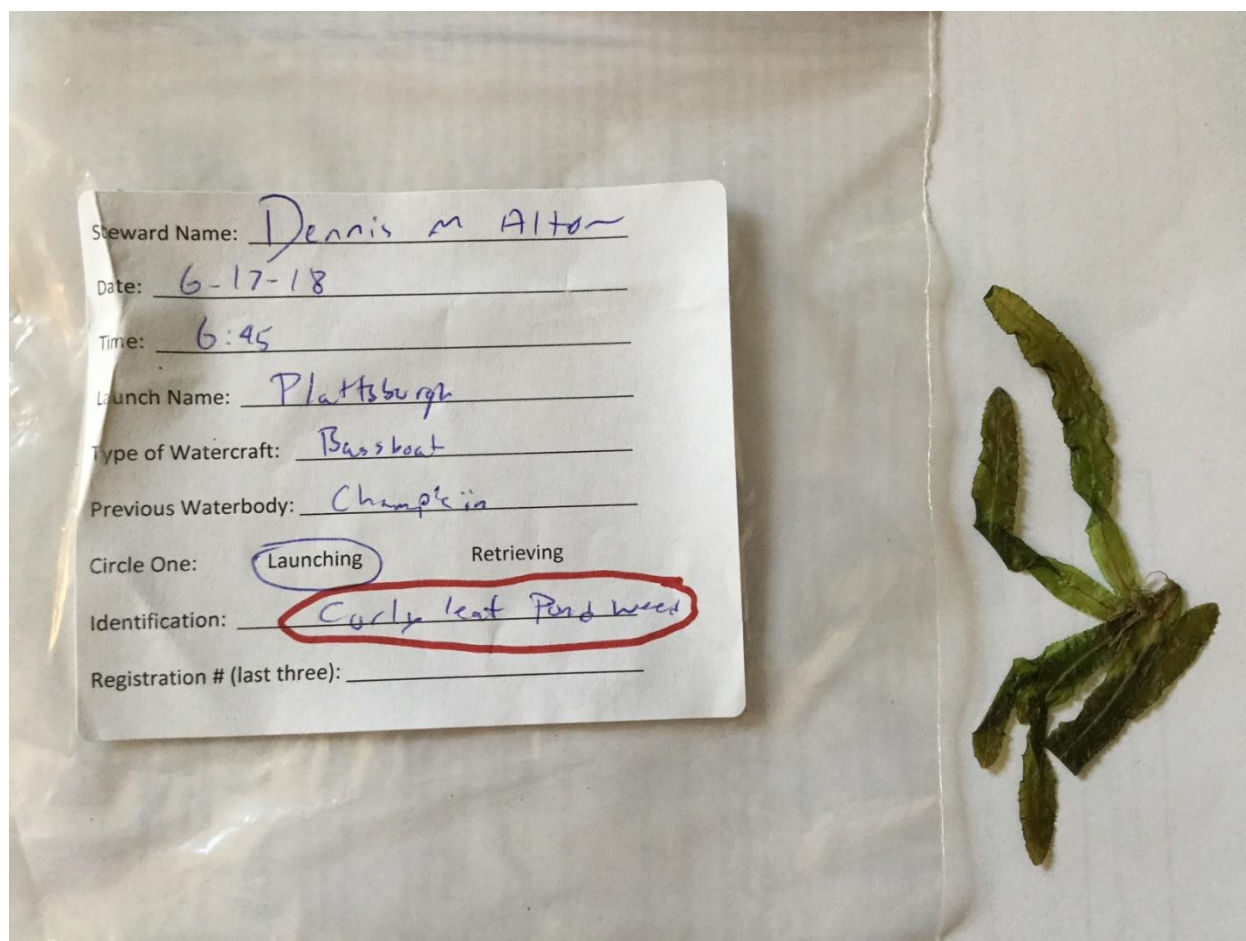 Steward Name: Dennis M Alton
Date: 6-17-18
Time: 6:45
Launch Name: Plattsburgh
Type of Watercraft: Bassboat
Previous Waterbody:
Circle One: Launching Retrieving
Identification: Curly leaf Pond weed
Registration # (last three):